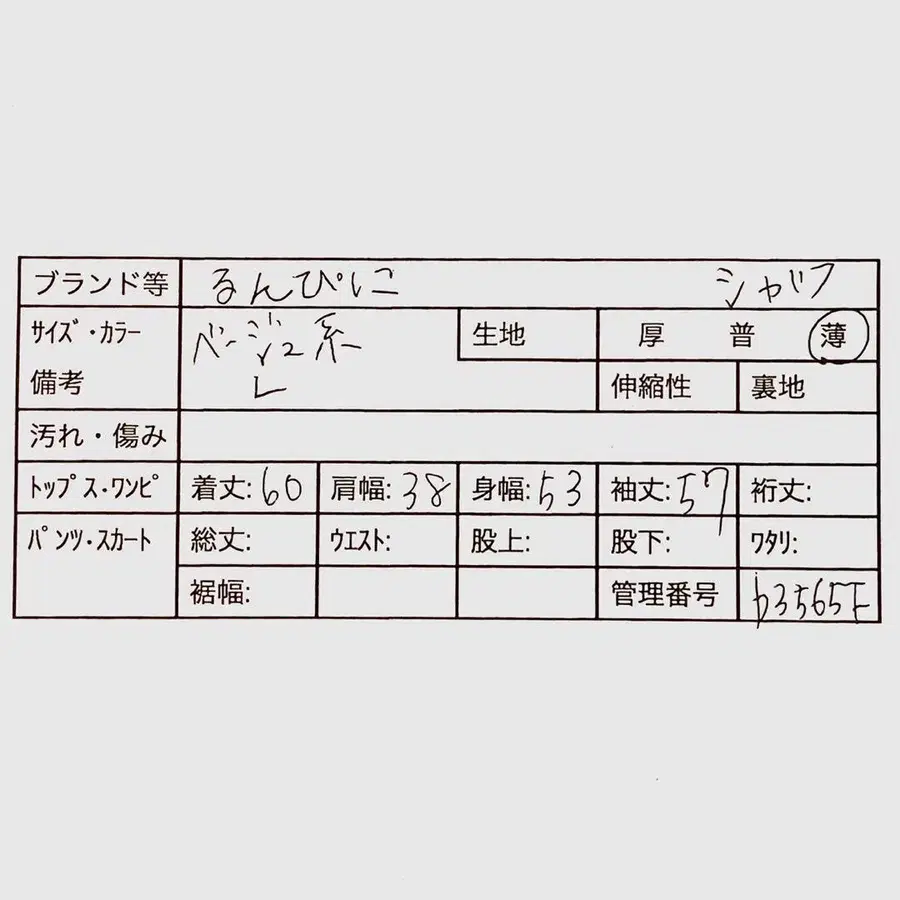 ブランド等 るんぴに シャツ
サイズ・カラー ベージュ系 生地 厚 普 薄
備考 L 伸縮性 裏地
汚れ・傷み
トップス・ワンピ 着丈:60 肩幅:38 身幅:53 袖丈:57 裄丈:
パンツ・スカート 総丈: ウエスト: 股上: 股下: ワタリ:
裾幅: 管理番号 b3565F